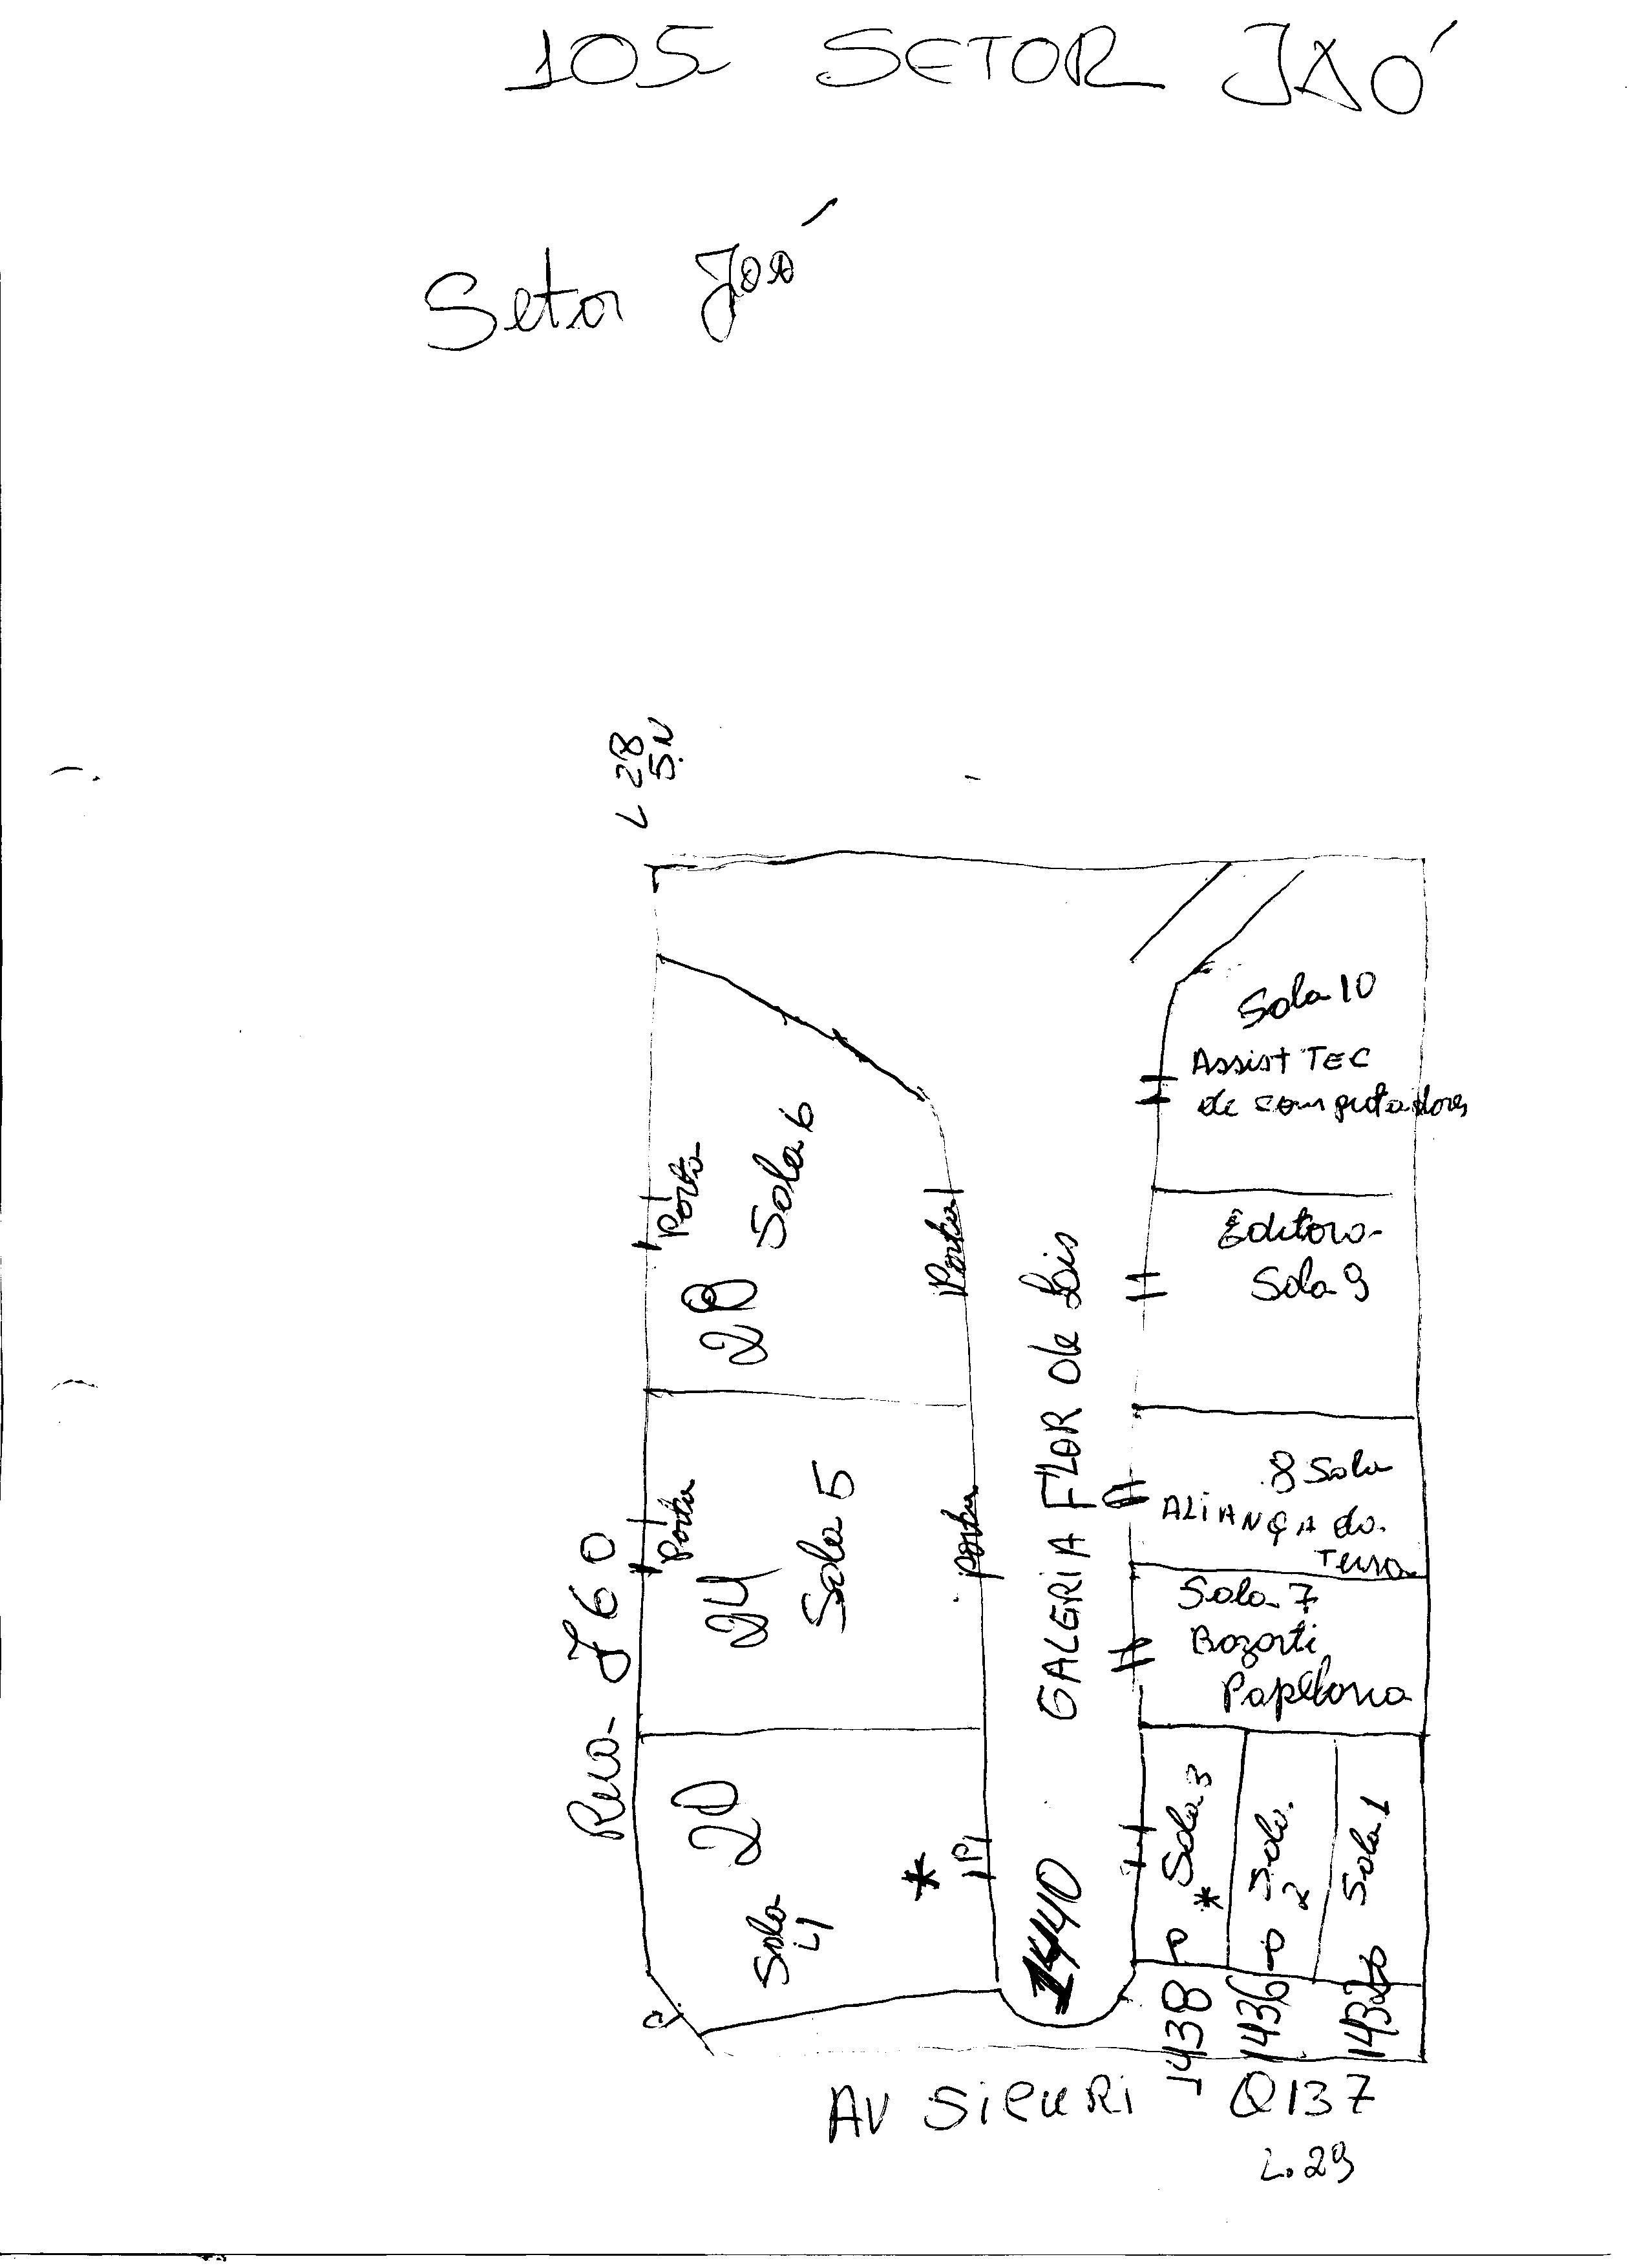 105 SETOR JAÓ
Setor Jaó
L 28
S.N
Sala 10
Assist TEC
de computadores
Porta
Sala 6
28
Porta
Editora
Sala 9
GALERIA FLOR de Lis
8 Sala
ALIANÇA da
Terra
Rua J 60
Porta
Sala 5
24
Porta
Sala 7
Bazarti
Papelaria
20
Sala
4
*
P
1440
Sala 3
*
Sala
2
Sala 1
1438
1436
AV SiCURi
Q137
L.29